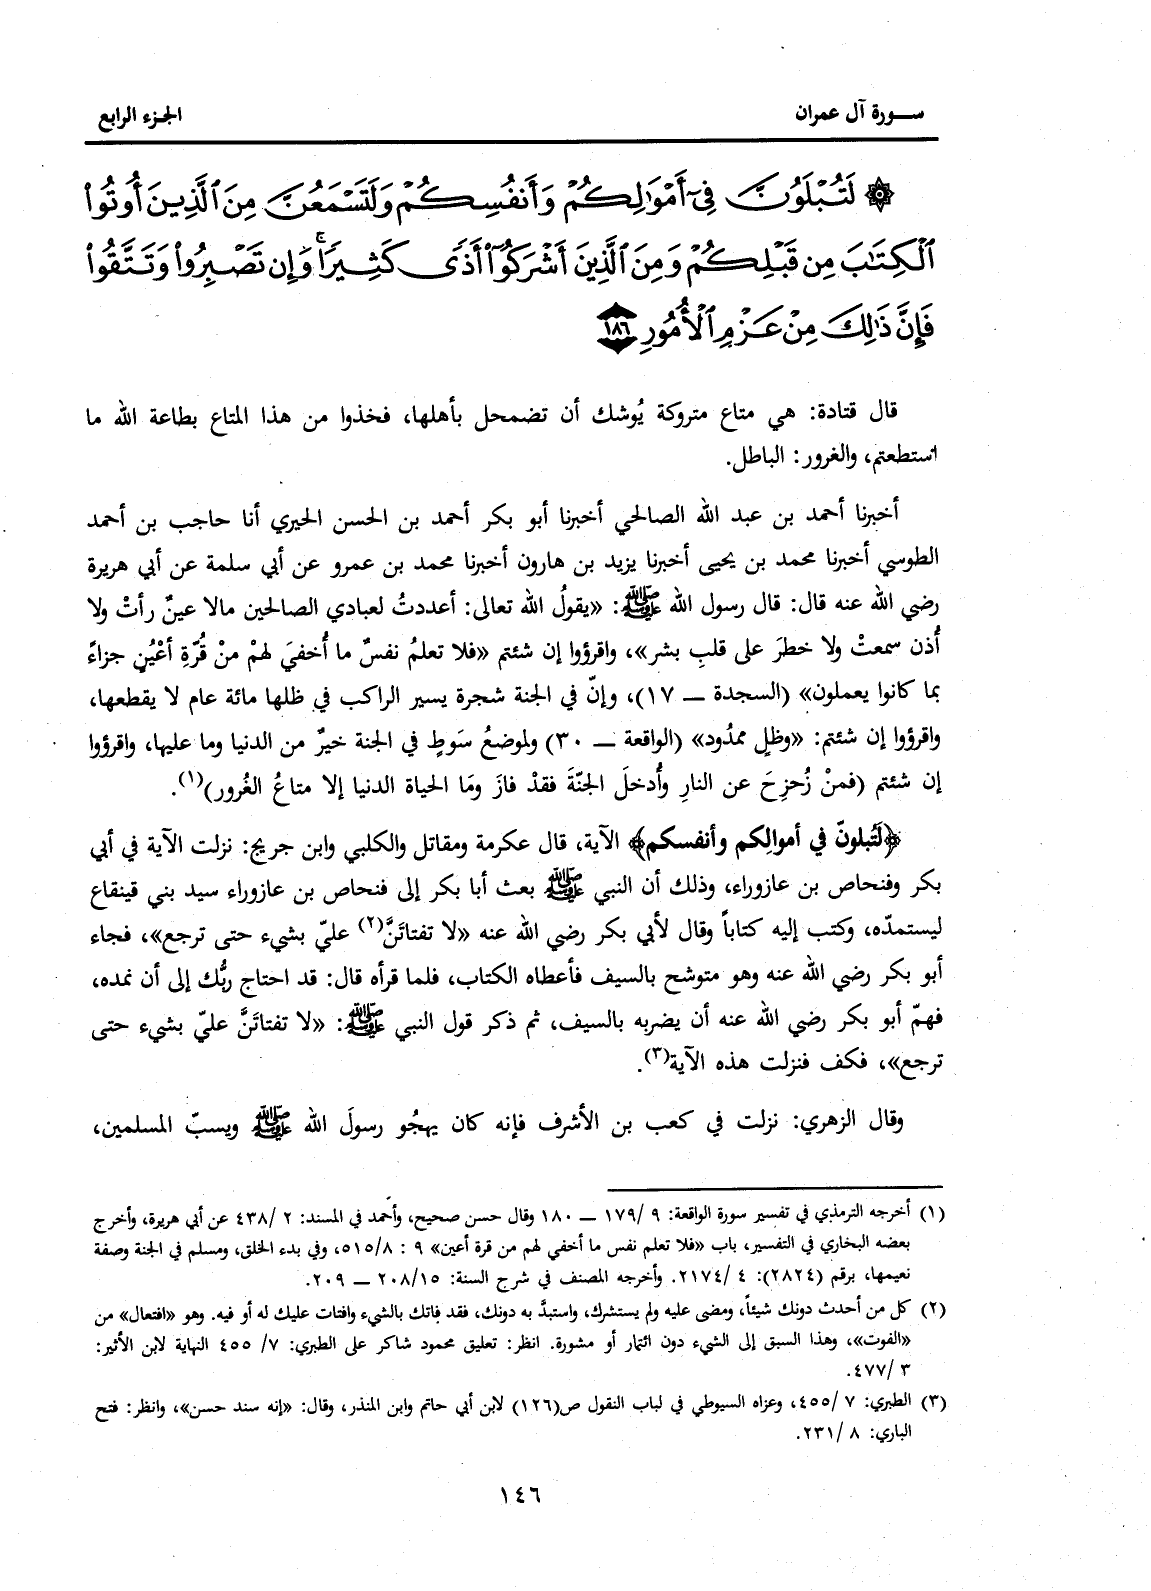 سورة آل عمران
الجزء الرابع
۞ لَتُبْلَوُنَّ فِىٓ أَمْوَٰلِكُمْ وَأَنفُسِكُمْ وَلَتَسْمَعُنَّ مِنَ ٱلَّذِينَ أُوتُوا۟
ٱلْكِتَٰبَ مِن قَبْلِكُمْ وَمِنَ ٱلَّذِينَ أَشْرَكُوٓا۟ أَذًى كَثِيرًا ۚ وَإِن تَصْبِرُوا۟ وَتَتَّقُوا۟
فَإِنَّ ذَٰلِكَ مِنْ عَزْمِ ٱلْأُمُورِ ١٨٦
قال قتادة: هي متاع متروكة يُوشك أن تضمحل بأهلها، فخذوا من هذا المتاع بطاعة الله ما
استطعتم، والغرور: الباطل.
أخبرنا أحمد بن عبد الله الصالحي أخبرنا أبو بكر أحمد بن الحسن الحيري أنا حاجب بن أحمد
الطوسي أخبرنا محمد بن يحيى أخبرنا يزيد بن هارون أخبرنا محمد بن عمرو عن أبي سلمة عن أبي هريرة
رضي الله عنه قال: قال رسول الله ﷺ: «يقولُ الله تعالى: أعددتُ لعبادي الصالحين مالا عينٌ رأتْ ولا
أُذن سمعتْ ولا خطرَ على قلبِ بشر»، واقرؤوا إن شئتم «فلا تعلمُ نفسٌ ما أُخفيَ لهمْ منْ قُرّةِ أعْيُنٍ جزاءً
بما كانوا يعملون» (السجدة ــ ١٧)، وإنّ في الجنة شجرة يسير الراكب في ظلها مائة عام لا يقطعها،
واقرؤوا إن شئتم: «وظلٍ ممدُود» (الواقعة ــ ٣٠) ولموضعُ سَوطٍ في الجنة خيرٌ من الدنيا وما عليها، واقرؤوا
إن شئتم (فمنْ زُحزِحَ عن النارِ وأُدخلَ الجنّةَ فقدْ فازَ ومَا الحياة الدنيا إلا متاعُ الغُرور)(١).
﴿لَتُبلونّ في أموالِكم وأنفسكم﴾ الآية، قال عكرمة ومقاتل والكلبي وابن جريج: نزلت الآية في أبي
بكر وفنحاص بن عازوراء، وذلك أن النبي ﷺ بعث أبا بكر إلى فنحاص بن عازوراء سيد بني قينقاع
ليستمدّه، وكتب إليه كتاباً وقال لأبي بكر رضي الله عنه «لا تفتاتَنَّ(٢) عليّ بشيء حتى ترجع»، فجاء
أبو بكر رضي الله عنه وهو متوشح بالسيف فأعطاه الكتاب، فلما قرأه قال: قد احتاج ربُّك إلى أن نمده،
فهمّ أبو بكر رضي الله عنه أن يضربه بالسيف، ثم ذكر قول النبي ﷺ: «لا تفتاتَنَّ عليّ بشيء حتى
ترجع»، فكف فنزلت هذه الآية(٣).
وقال الزهري: نزلت في كعب بن الأشرف فإنه كان يهجُو رسولَ الله ﷺ ويسبّ المسلمين،
(١) أخرجه الترمذي في تفسير سورة الواقعة: ٩ /١٧٩ ــ ١٨٠ وقال حسن صحيح، وأحمد في المسند: ٢ /٤٣٨ عن أبي هريرة، وأخرج
بعضه البخاري في التفسير، باب «فلا تعلم نفس ما أخفي لهم من قرة أعين» ٩ : ٥١٥/٨، وفي بدء الخلق، ومسلم في الجنة وصفة
نعيمها، برقم (٢٨٢٤): ٤ /٢١٧٤. وأخرجه المصنف في شرح السنة: ٢٠٨/١٥ ــ ٢٠٩.
(٢) كل من أحدث دونك شيئاً، ومضى عليه ولم يستشرك، واستبدَّ به دونك، فقد فاتك بالشيء وافتات عليك له أو فيه. وهو «افتعال» من
«الفوت»، وهذا السبق إلى الشيء دون ائتمار أو مشورة. انظر: تعليق محمود شاكر على الطبري: ٧/ ٤٥٥ النهاية لابن الأثير:
٣ /٤٧٧.
(٣) الطبري: ٧ /٤٥٥، وعزاه السيوطي في لباب النقول ص(١٢٦) لابن أبي حاتم وابن المنذر، وقال: «إنه سند حسن»، وانظر: فتح
الباري: ٨ /٢٣١.
١٤٦